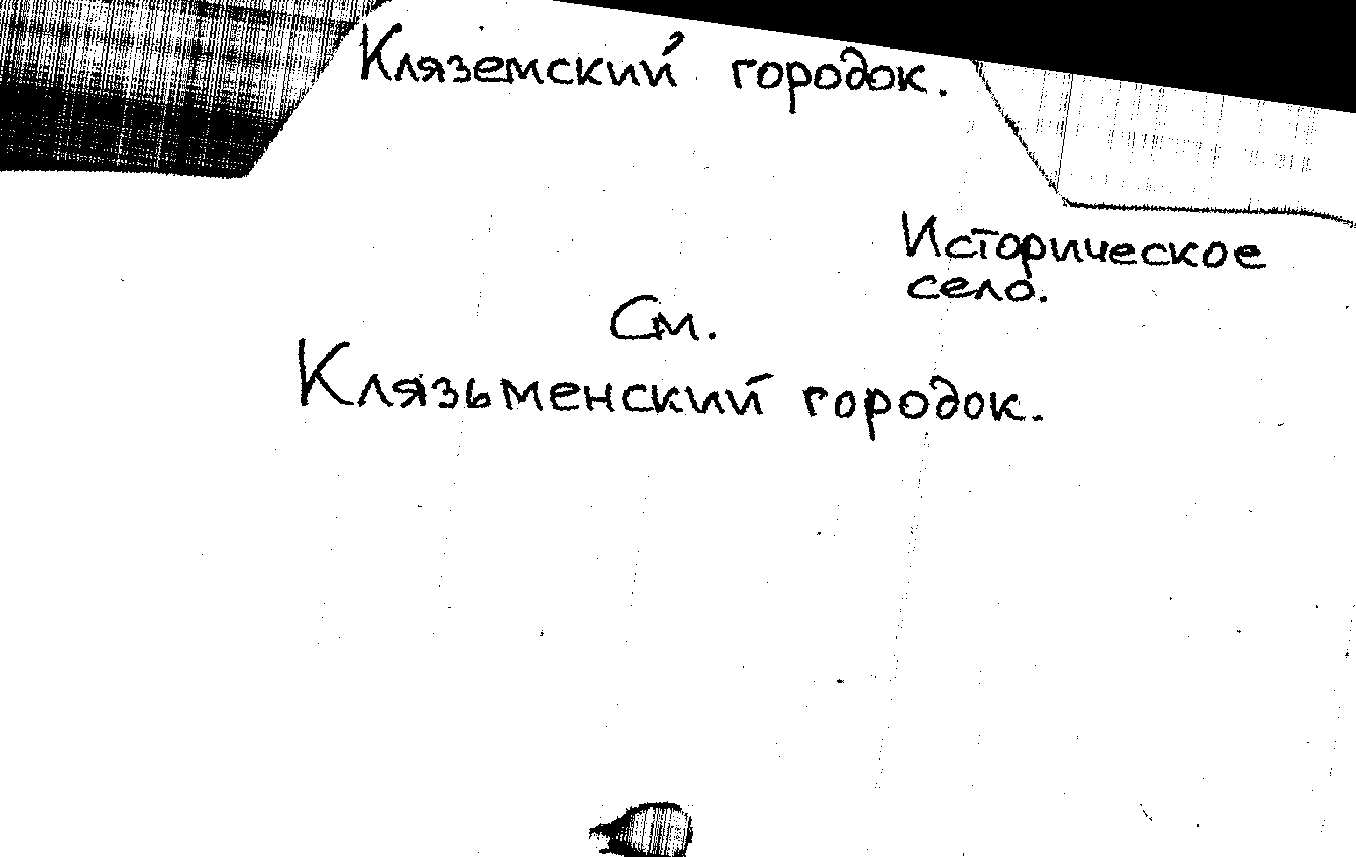 Кляземский городок.
Историческое
село.
См.
Клязьменский городок.